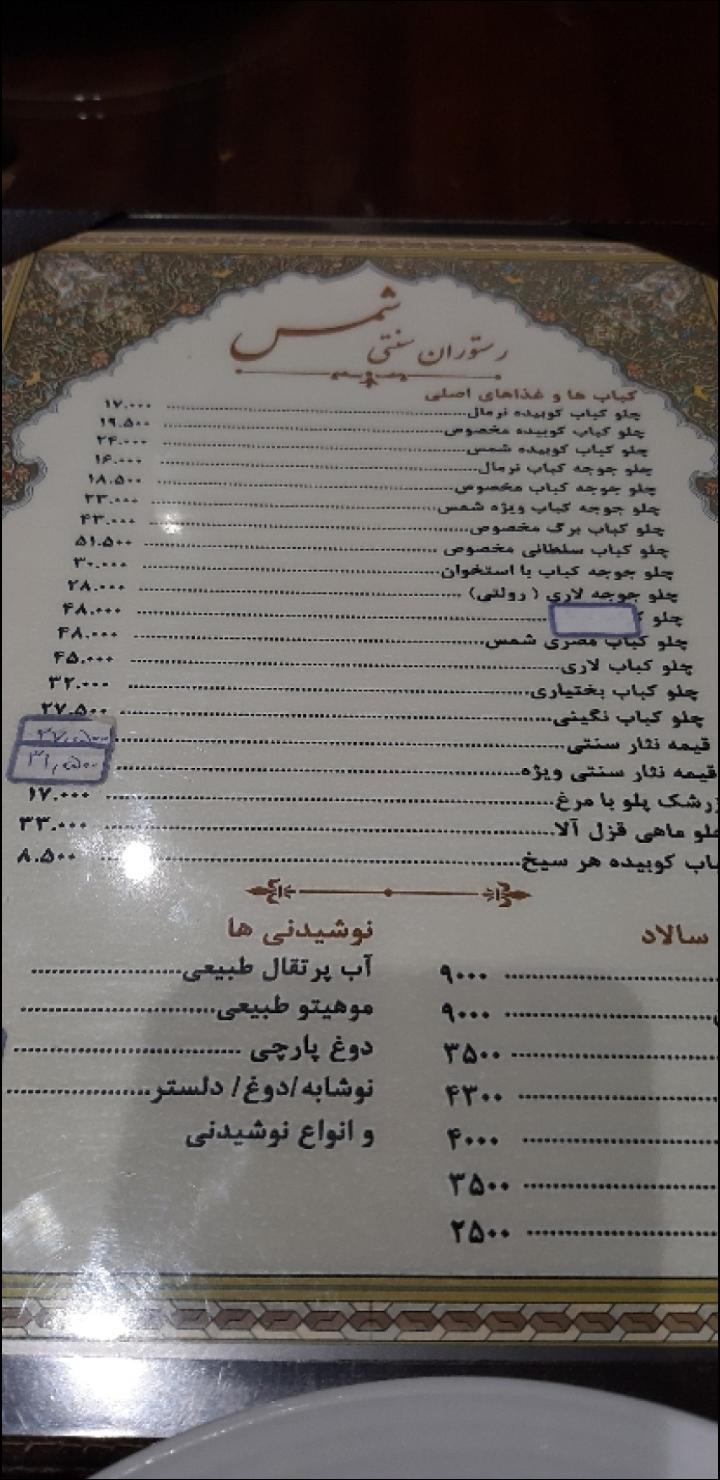 رستوران سنتی شمس
کباب ها و غذاهای اصلی
چلو کباب کوبیده نرمال ۱۷.۰۰۰
چلو کباب کوبیده مخصوص ۱۹.۵۰۰
چلو کباب کوبیده شمس ۲۴.۰۰۰
چلو جوجه کباب نرمال ۱۶.۰۰۰
چلو جوجه کباب مخصوص ۱۸.۵۰۰
چلو جوجه کباب ویژه شمس ۲۳.۰۰۰
چلو کباب برگ مخصوص ۴۳.۰۰۰
چلو کباب سلطانی مخصوص ۵۱.۵۰۰
چلو جوجه کباب با استخوان ۳۰.۰۰۰
چلو جوجه لاری ( رولتی) ۲۸.۰۰۰
چلو ۴۸.۰۰۰
چلو کباب مصری شمس ۴۸.۰۰۰
چلو کباب لاری ۴۵.۰۰۰
چلو کباب بختیاری ۳۲.۰۰۰
چلو کباب نگینی ۲۷.۵۰۰
قیمه نثار سنتی ۲۷,۵۰۰
قیمه نثار سنتی ویژه ۳۱,۵۰۰
زرشک پلو با مرغ ۱۷.۰۰۰
ماهی قزل آلا ۳۳.۰۰۰
کوبیده هر سیخ ۸.۵۰۰
سالاد
۹۰۰۰
۹۰۰۰
۳۵۰۰
۴۳۰۰
۴۰۰۰
۳۵۰۰
۲۵۰۰
نوشیدنی ها
آب پرتقال طبیعی
موهیتو طبیعی
دوغ پارچی
نوشابه/دوغ/ دلستر
و انواع نوشیدنی